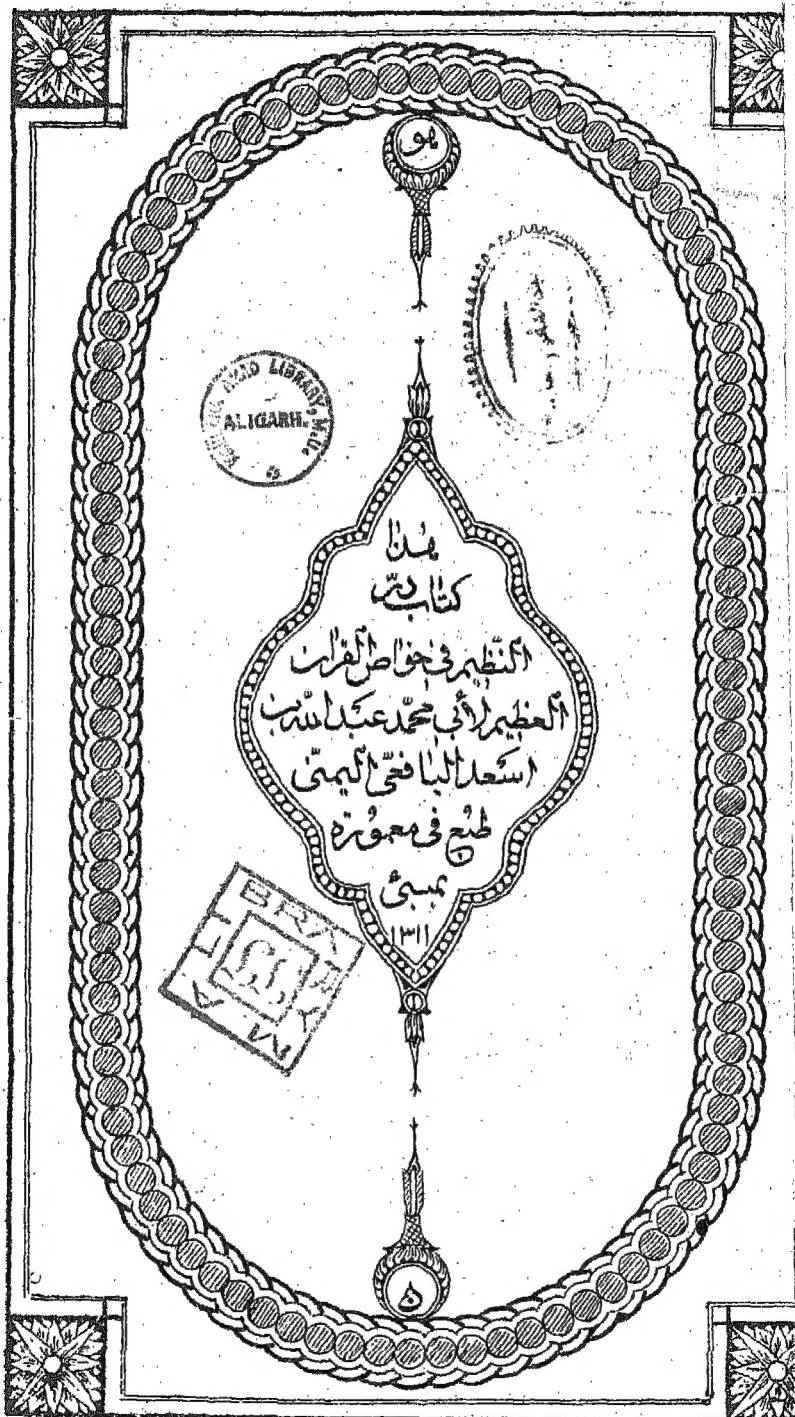 هو
AZAD LIBRARY, M.U.
ALIGARH.
هذا
كتاب درّ
النّظيم في خواص القران
العظيم لأبي محمّد عبد الله بن
اسعد اليافعيّ اليمنيّ
طبع في معمورة
بمبئ
١٣١١